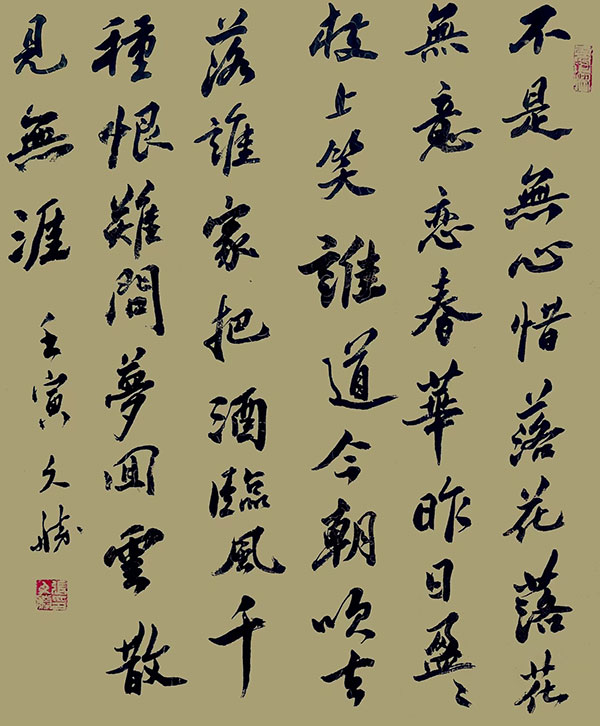 不是無心惜落花落花
無意恋春華昨日盈〻
枝上笑誰道今朝吹去
落誰家把酒臨風千
種恨難問夢囬雲散
見無涯 壬寅文勝